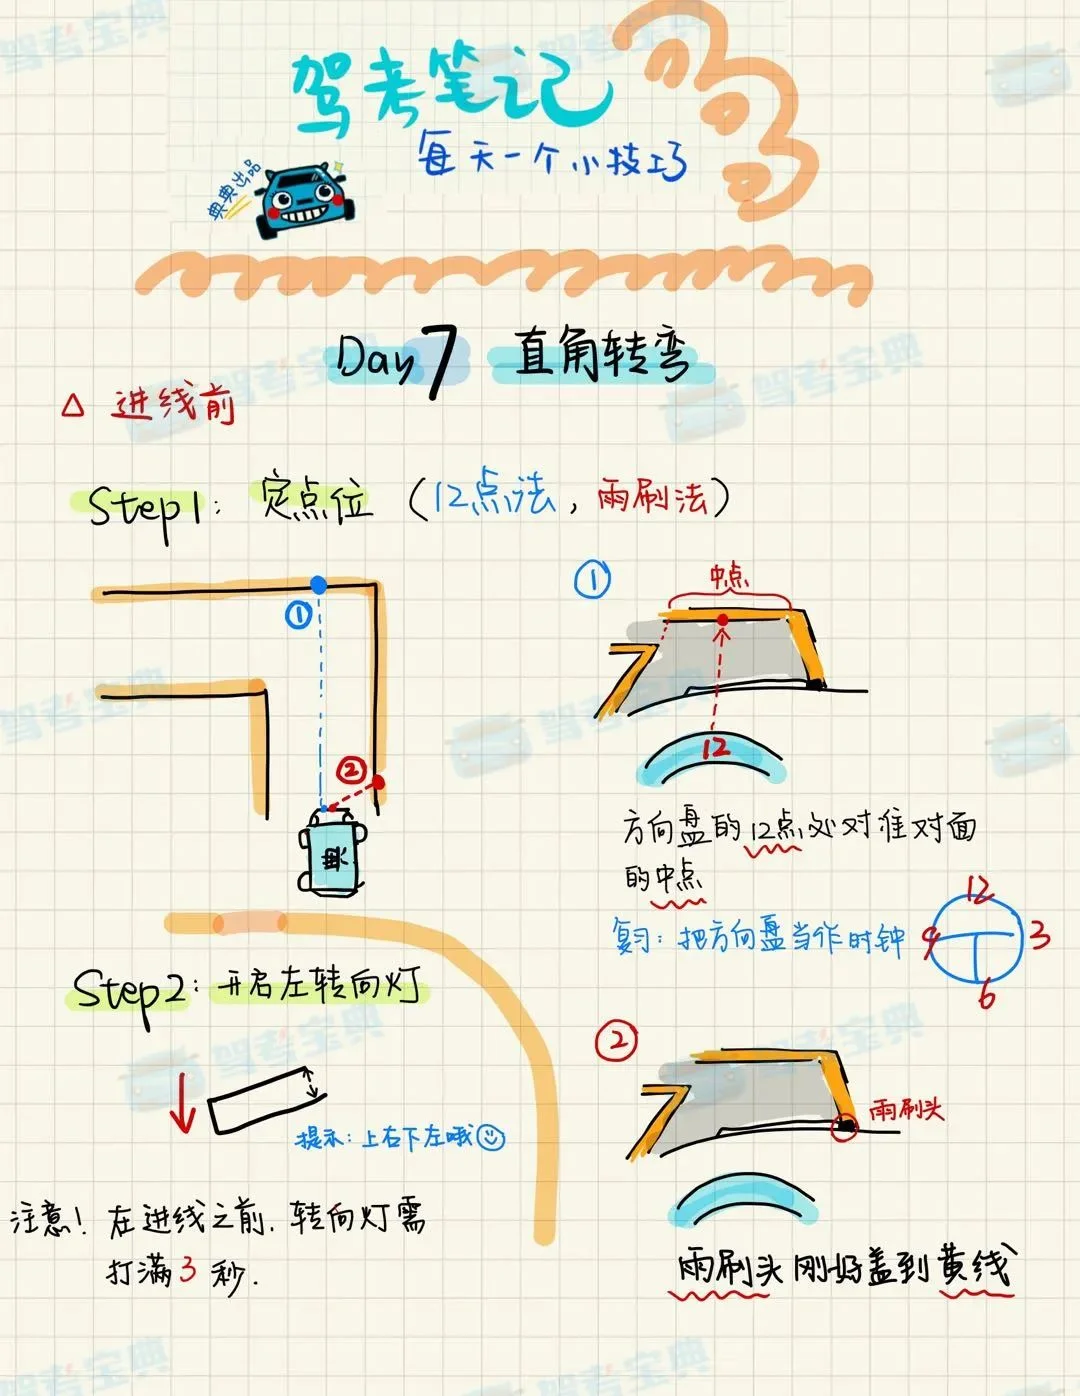 驾考笔记
每天一个小技巧
典典出品
Day 7 直角转弯
△ 进线前
Step1: 定点位 (12点法, 雨刷法)
①
②
典
①
中点
12
方向盘的12点处对准对面
的中点
复习: 把方向盘当作时钟
12
9 3
6
Step2: 开启左转向灯
提示: 上右下左哦
注意! 在进线之前, 转向灯需
打满3秒.
②
雨刷头
雨刷头刚好盖到黄线
驾考宝典